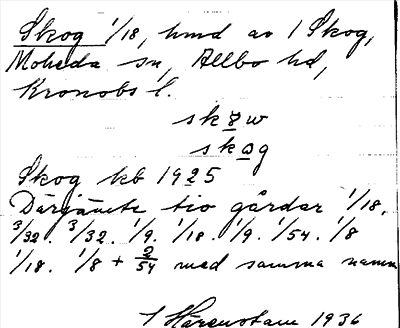 Skog 1/18, hmd av 1 Skog,
Moheda sn, Allbo hd,
Kronobs l.
skɤw
skɔg
Skog kb 1925
Därjämte tio gårdar 1/18.
3/32. 3/32. 1/9. 1/18. 1/9. 1/54. 1/8
1/18. 1/8 + 2/54 med samma namn
Härenstam 1936